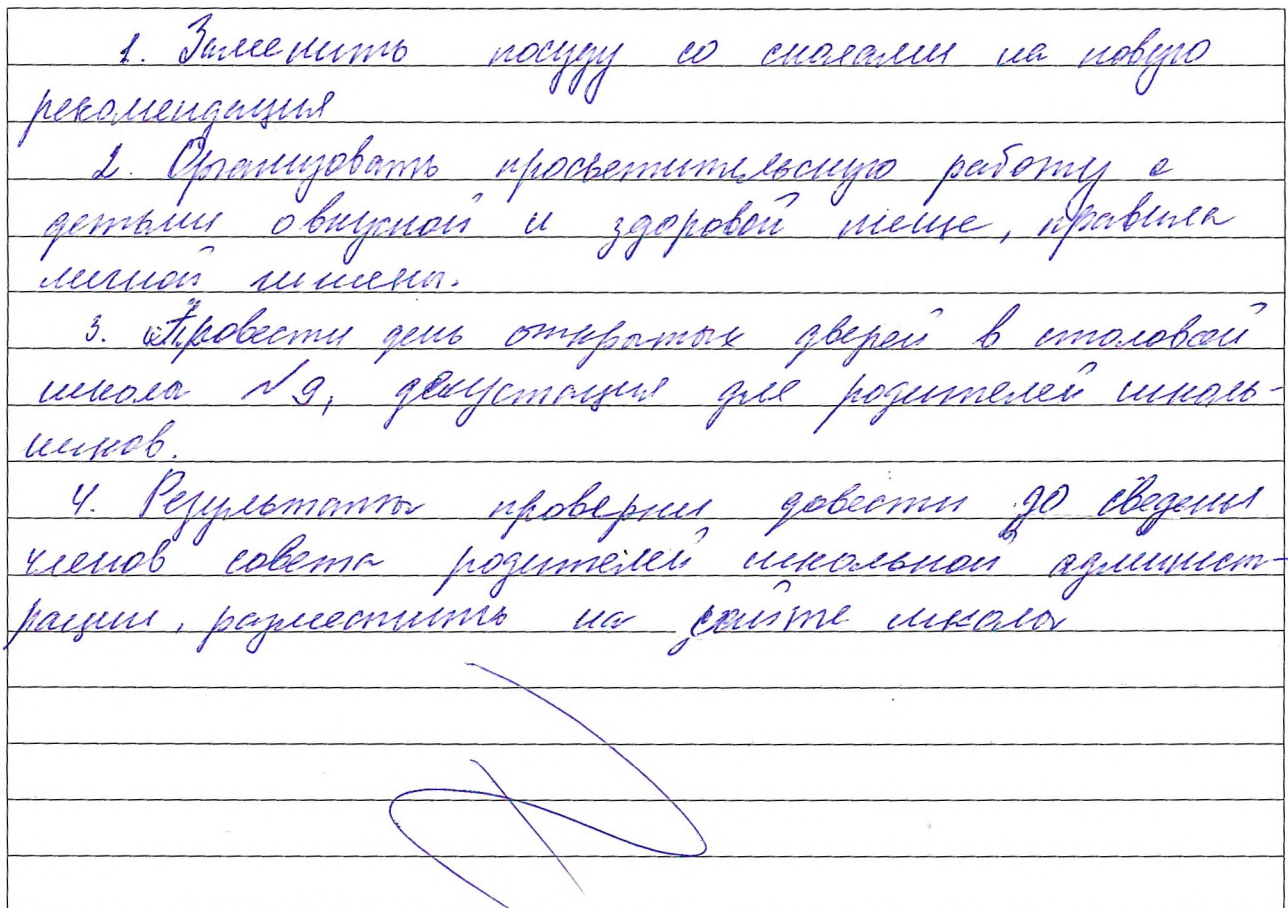 1. Заменить посуду со сколами на новую
рекомендация
2. Организовать просветительскую работу с
детьми о вкусной и здоровой пище, правила
личной гигиены.
3. Провести день открытых дверей в столовой
школа №9, дегустация для родителей школь-
ников.
4. Результаты проверки довести до сведенья
членов совета родителей школьной админист-
рации, разместить на сайте школы